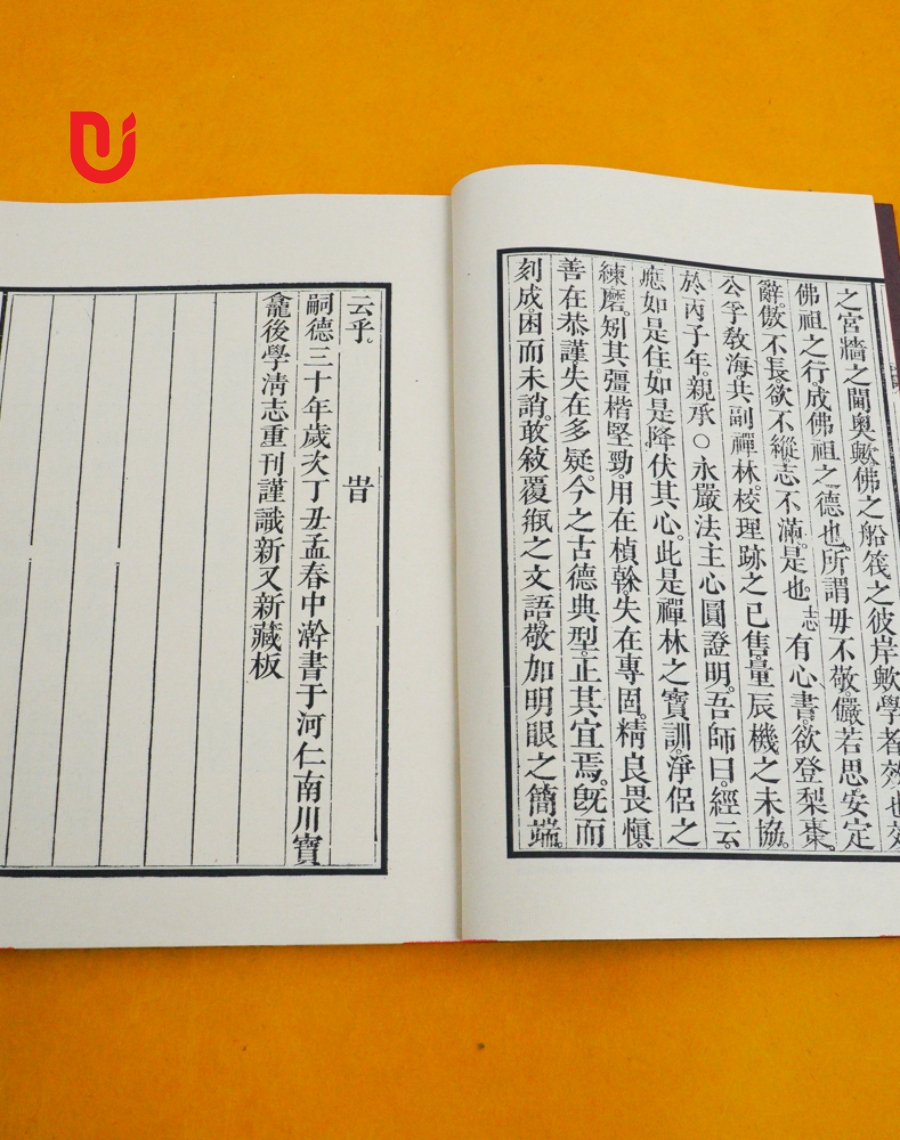 之宮牆之閫奧歟佛之船筏之彼岸歟學者效也效
佛祖之行成佛祖之德也。所謂毋不敬。儼若思。安定
辭。傲不長。欲不縱。志不滿。是也。志有心書。欲登梨棗。
公乎教海。共副禪林。校理跡之已售。量辰機之未協。
於丙子年。親承○永嚴法主心圓證明。吾師曰。經云。
應如是住。如是降伏其心。此是禪林之寶訓。淨侶之
練磨。矧其彊楷堅勁。用在楨榦。失在專固。精良畏愼。
善在恭謹。失在多疑。今之古德典型。正其宜焉。旣而
刻成。困而未誚。敢敍覆瓿之文語。敬加明眼之簡端。
云乎。 旹
嗣德三十年歲次丁丑孟春中澣書于河仁南川寶
龕後學淸志重刊謹識新又新藏板